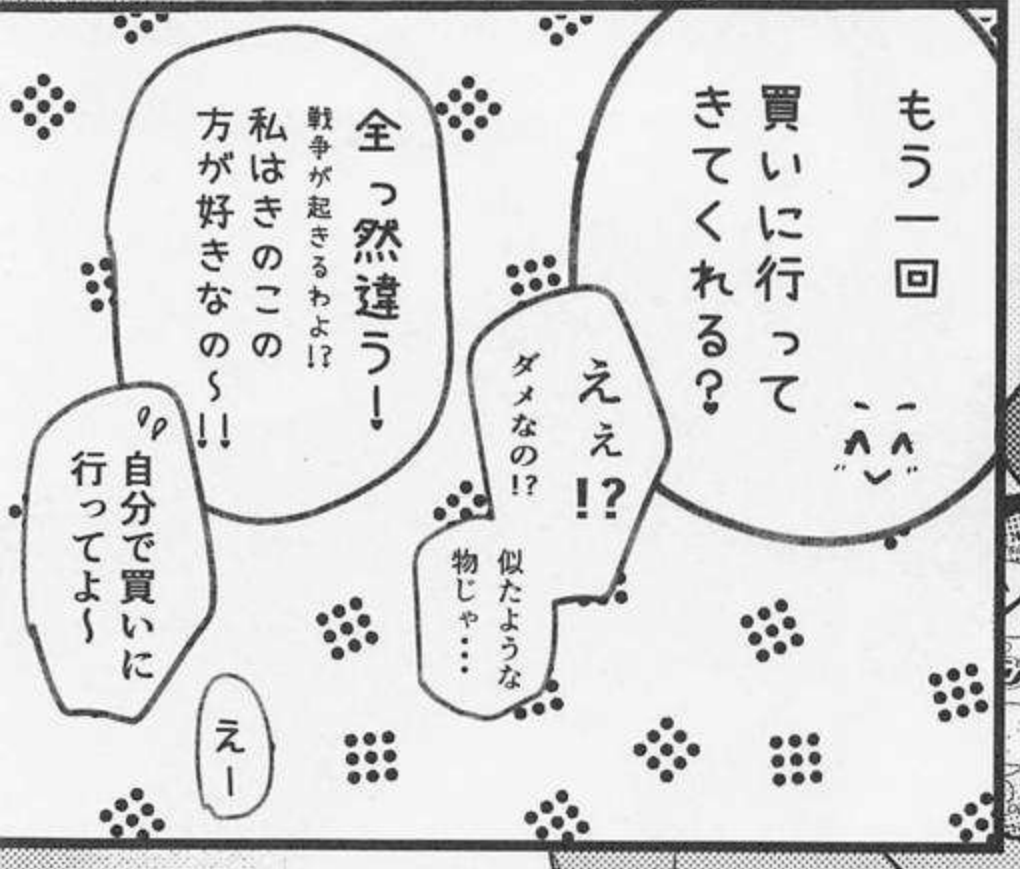 もう一回
買いに行って
きてくれる?
えぇ!?
ダメなの!?
似たような
物じゃ・・・・
全っ然違うー!
戦争が起きるわよ!?
私はきのこの
方が好きなの〜!!
自分で買いに
行ってよ〜
えー